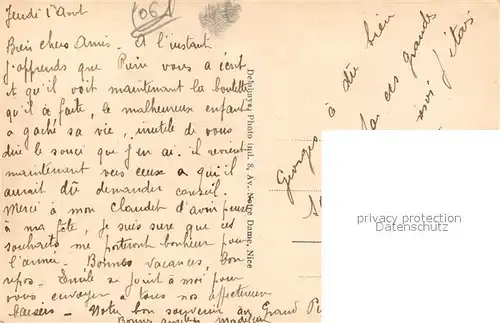 Jeudi 1er Aout
(061
Bien chers Amis - A l'instant
j'apprends que Pierre vous a écrit
et qu'il voit maintenant la boulette
qu'il à faite, le malheureux enfant
a gaché sa vie, inutile de vous
dire le souci que j'en ai. il revient
maintenant vers ceux a qui il
aurait dû demander conseil.
Merci à mon Claudet d'avoir pensé
à ma fête, je suis sure que ces
souhaits me porteront bonheur pour
l'année. Bonnes vacances, bon
repos. Emile se joint à moi pour
vous envoyer a tous nos affectueux
baisers - Notre bon souvenir au Grand
Bonne
Madeleine
Delbuys Photo ind. 8, Av. Notre Dame, Nice
Georges
à dû bien
ces grands
j'étais
privacy protection
www.oldthing.com